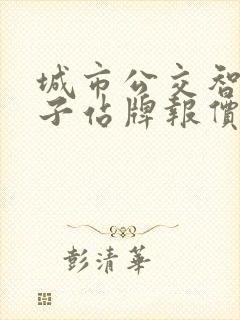 城市公交智
子佔牌報價
彭清華